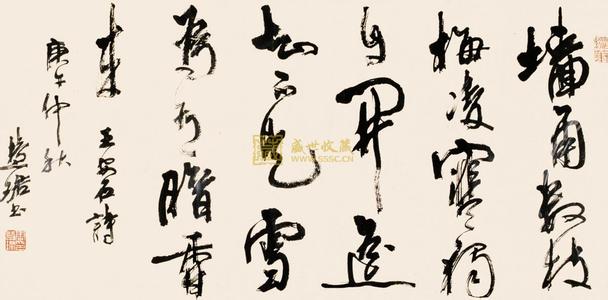 墙角数枝
梅凌寒独
自開遥
知不是雪
為有暗香
来 王安石詩
庚午仲秋
慧珺书
盛世收藏
WWW.SSSC.CN